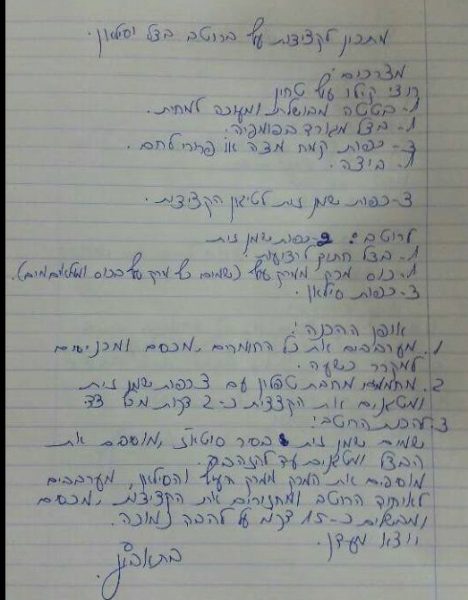 מתכון לקציצות עוף ברוטב בצל וסילאן.
מצרכים:
חצי קילו עוף טחון
1- בטטה מבושלת ומעוכה למחית.
1- בצל מגורד בפומפיה.
3- כפות קמח מצה או פרורי לחם.
1- ביצה.
3- כפות שמן זית לטיגון הקציצות.
לרוטב: 2- כפות שמן זית
1- בצל חתוך לרציעות
1- כוס מרק ממרק עוף (שמים כף מרק עוף בכוס ומלא מים).
3- כפות סילאן.
אופן ההכנה:
1. מערבבים את כל החומרים, מכסם ומכניסים
למקרר כשעה.
2. מחממים מחבת טפלון עם 3 כפות שמן זית
ומטגנים את הקציצות כ-2 דקות מכל צד
3- להכנת הרוטב:
שמים שמן זית בסיר סוטאז', מוספם את
הבצל ומטגנים עד להזהבה.
מוספים את המרק ממרק העוף והסילאן, מערבבים
לאיחוד הרוטב ומחזירים את הקציצות, מכסם
ומבשלים כ-15 דקות על להבה נמוכה.
יוצא מעדן.
בתאבון.